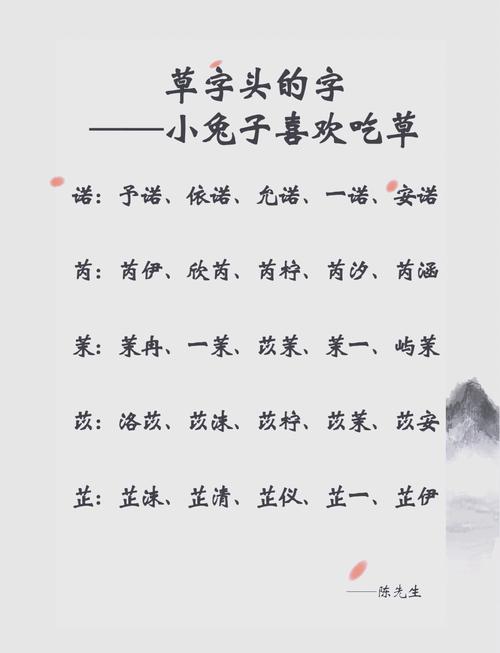 草字头的字
——小兔子喜欢吃草
诺：予诺、依诺、允诺、一诺、安诺
芮：芮伊、欣芮、芮柠、芮汐、芮涵
茉：茉冉、一茉、苡茉、茉一、屿茉
苡：洛苡、苡沫、苡柠、苡茉、苡安
芷：芷沫、芷清、芷仪、芷一、芷伊
——陈先生